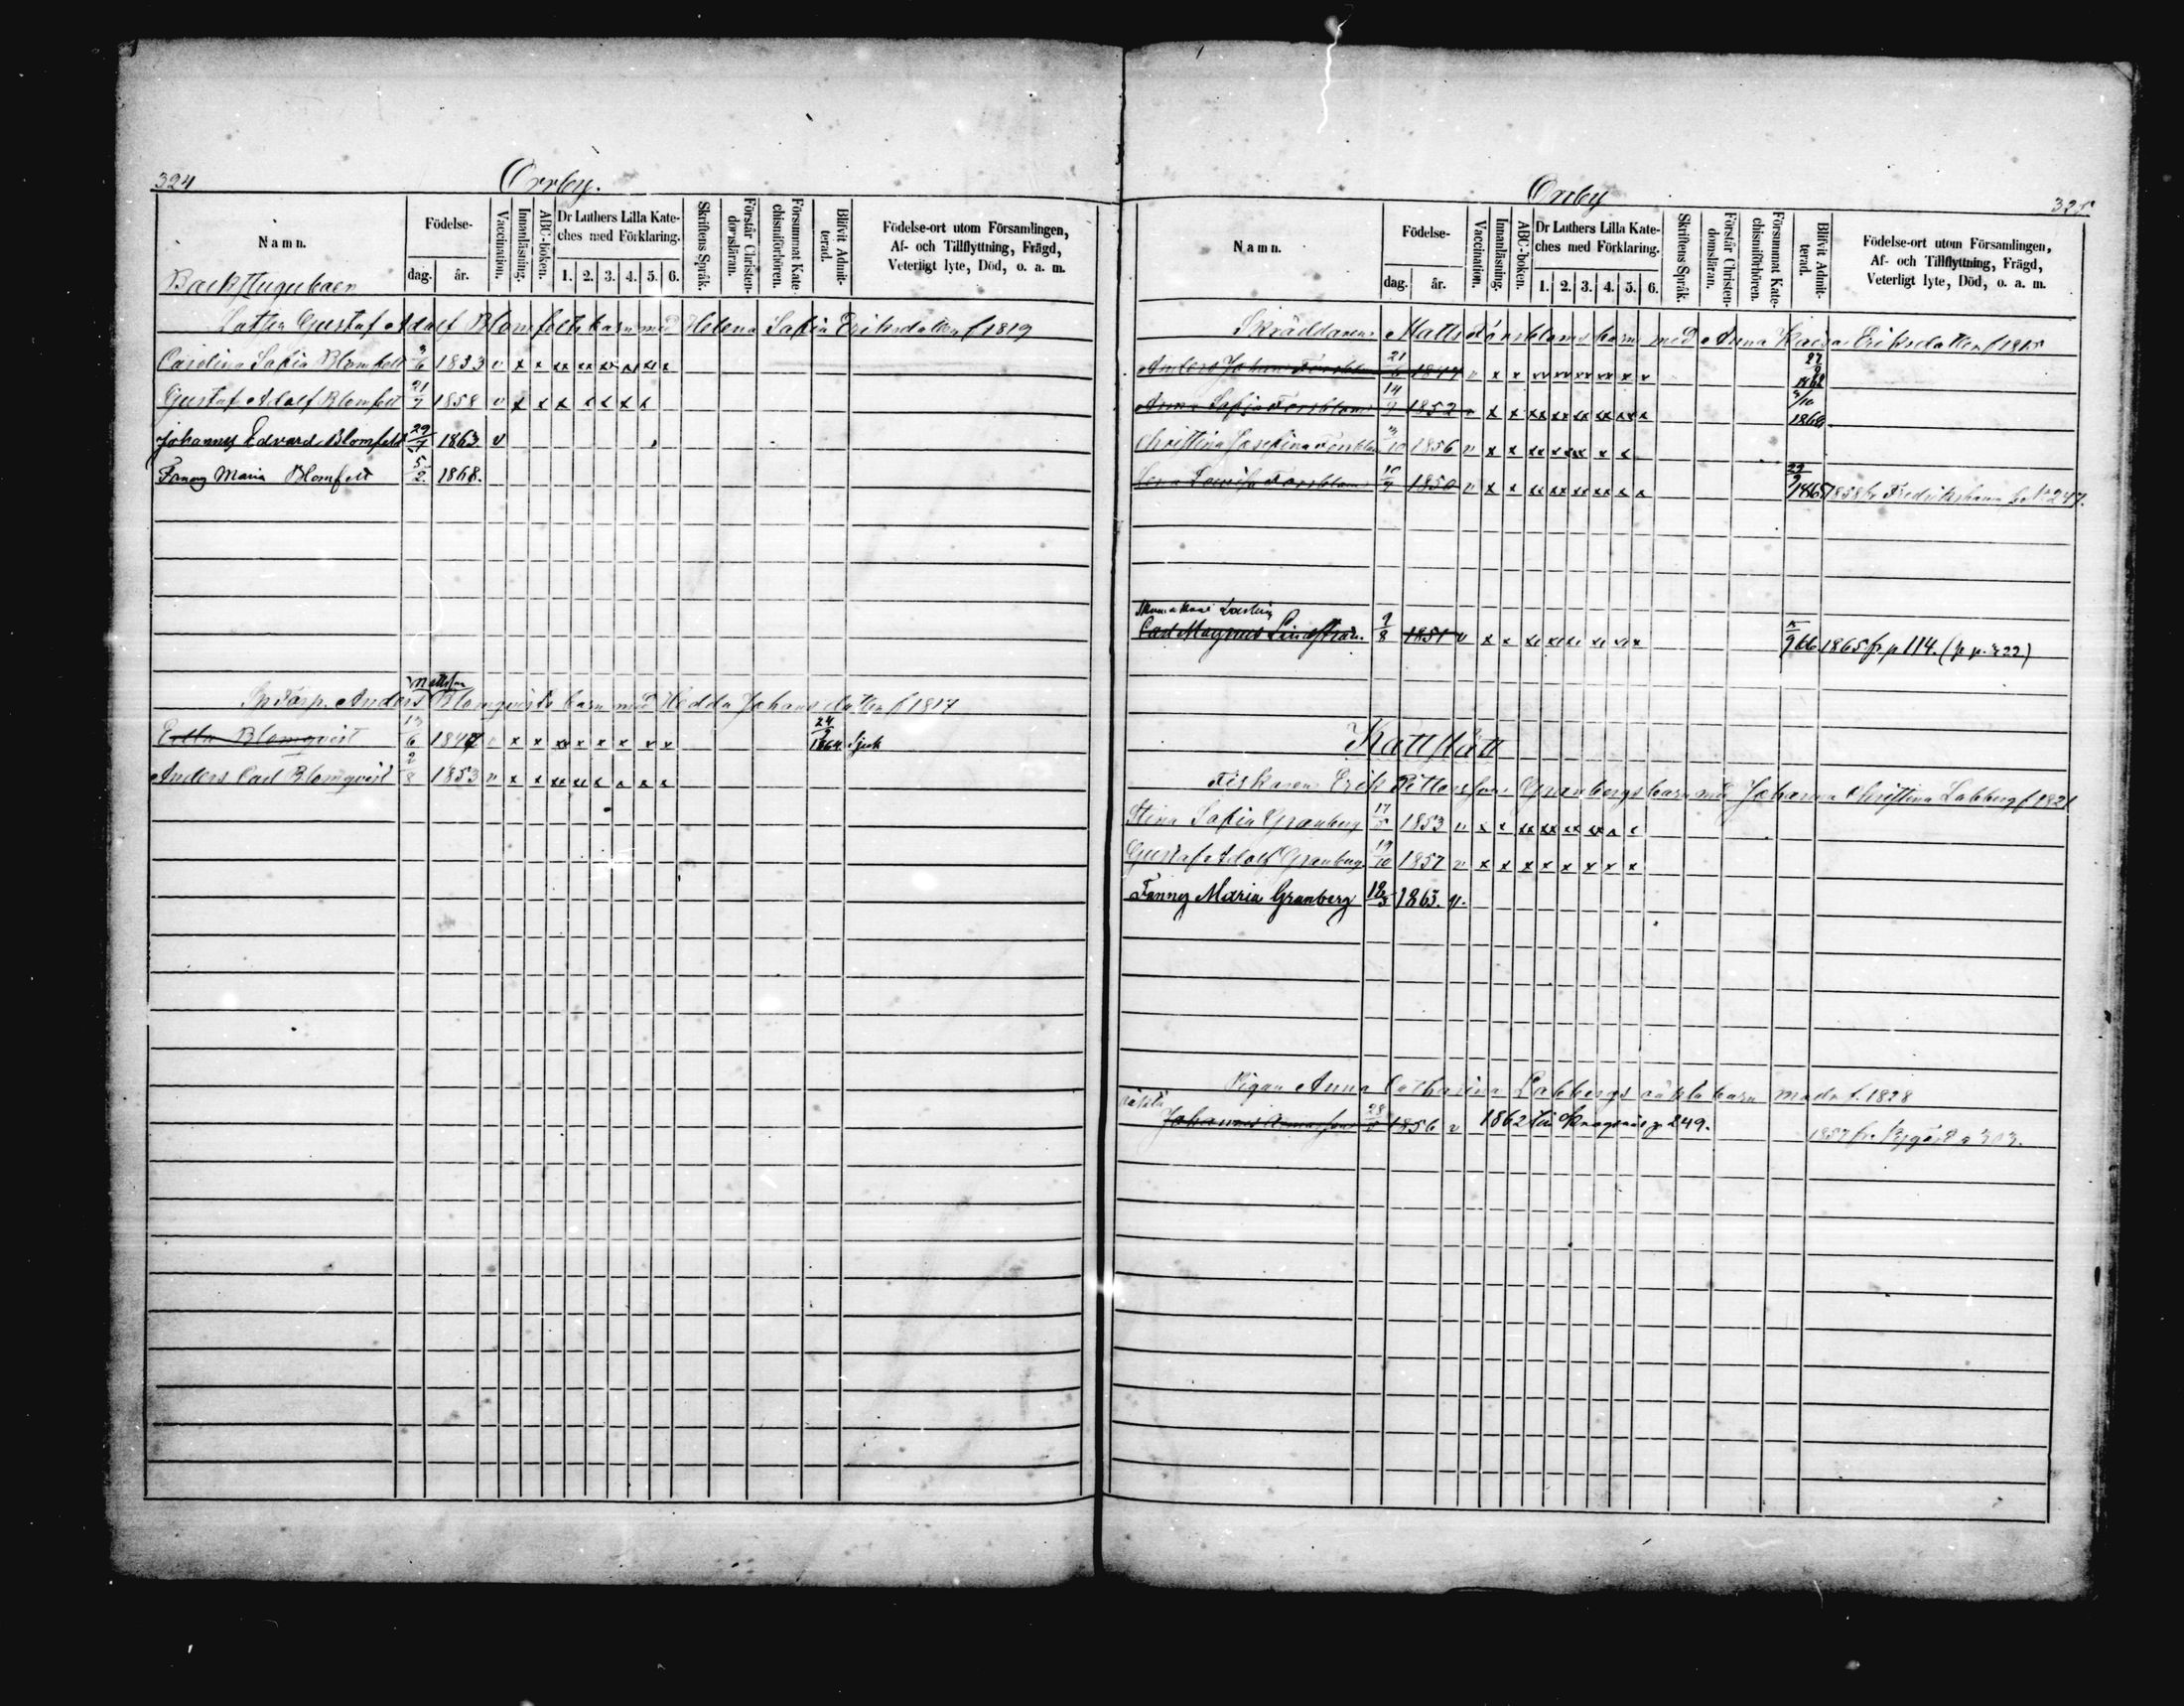 324
Orrby.
Namn.
Födelse-
dag.
år.
Vaccination.
Innanläsning.
ABC-boken.
Dr Luthers Lilla Kate-
ches med Förklaring.
1. 2. 3. 4. 5. 6.
Skriftens Språk.
Förstår Christen-
domsläran.
Försummat Kate-
chismiförhören.
Blifvit Admit-
terad.
Födelse-ort utom Församlingen,
Af- och Tillflyttning, Frägd,
Veterligt lyte, Död, o. a. m.
Gustaf Adolf Blomfelts barn med Helena Sofia Eriksdotter f 1819
Carolina Sofia Blomfelt 1853 v x x xx xx xx x xx x
Gustaf Adolf Blomfelt 21/7 1858 v x x x x x x x
Johannes Edvard Blomfelt 1863 v
Fanny Maria Blomfelt 5/2 1868.
Mattsson
Anders Blomqvists barn med Hedda Johansdotter f 1817
Blomqvist 13/6 1847 x x xx x x x x x 24/9 1864
Anders Carl Blomqvist 2/8 1853 v x x xx xx x x x x
Orrby
325
Namn.
Födelse-
dag.
år.
Vaccination.
Innanläsning.
ABC-boken.
Dr Luthers Lilla Kate-
ches med Förklaring.
1. 2. 3. 4. 5. 6.
Skriftens Språk.
Förstår Christen-
domsläran.
Försummat Kate-
chismiförhören.
Blifvit Admit-
terad.
Födelse-ort utom Församlingen,
Af- och Tillflyttning, Frägd,
Veterligt lyte, Död, o. a. m.
Skräddaren Matts Forsbloms barn med Anna Eriksdotter
Anders Johan Forsblom v x x xx xx xx xx x x
Anna Sofia Forsblom 14/9 1852 x x xx xx xx xx x x
Christina Josefina 1856 v x x xx x xx x x
Lovisa Forsblom 1850 v x x xx xx xx xx x x Fredrikshamn
Carl Magnus Lindström. 9/8 1851 v x x 66 1865 fr p 114.
Kattslätt
Fiskaren Erik Pettersson Granbergs barn med Johanna Christina Labberg f 1821
Stina Sofia Granberg 17/5 1853 v x x xx xx xx xx x x
Gustaf Adolf Granberg 19/10 1857 v x x x x x x x x
Fanny Maria Granberg 1863. v.
Pigan Anna Catharina Labbergs oäkta barn modr f. 1828
oäkta
Johannes 1856 v 1862 till p 249.
1857 fr. p 303.